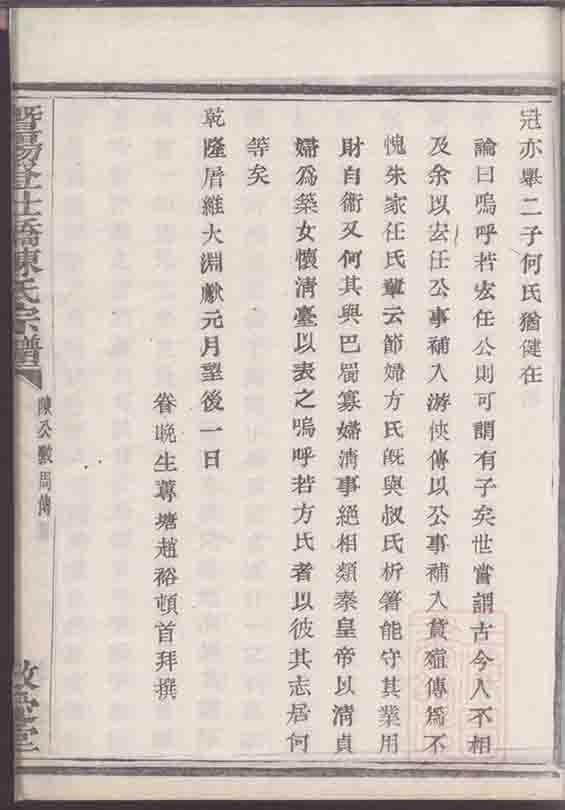 冠亦舉二子何氏猶健在
論曰嗚呼若宏任公則可謂有子矣世嘗謂古今人不相
及余以宏任公事補入游俠傳以公事補入貨殖傳為不
愧朱家任氏輩云節婦方氏旣與叔氏析箸能守其業用
財自衞又何其與巴蜀寡婦清事絕相類秦皇帝以清貞
婦爲築女懷清臺以表之嗚呼若方氏者以彼其志居何
等矣
乾隆曆維大淵獻元月望後一日
眷晚生蓴塘趙裕頓首拜撰
暨陽宅士橋陳氏宗譜
陳公 周傳
敦 堂